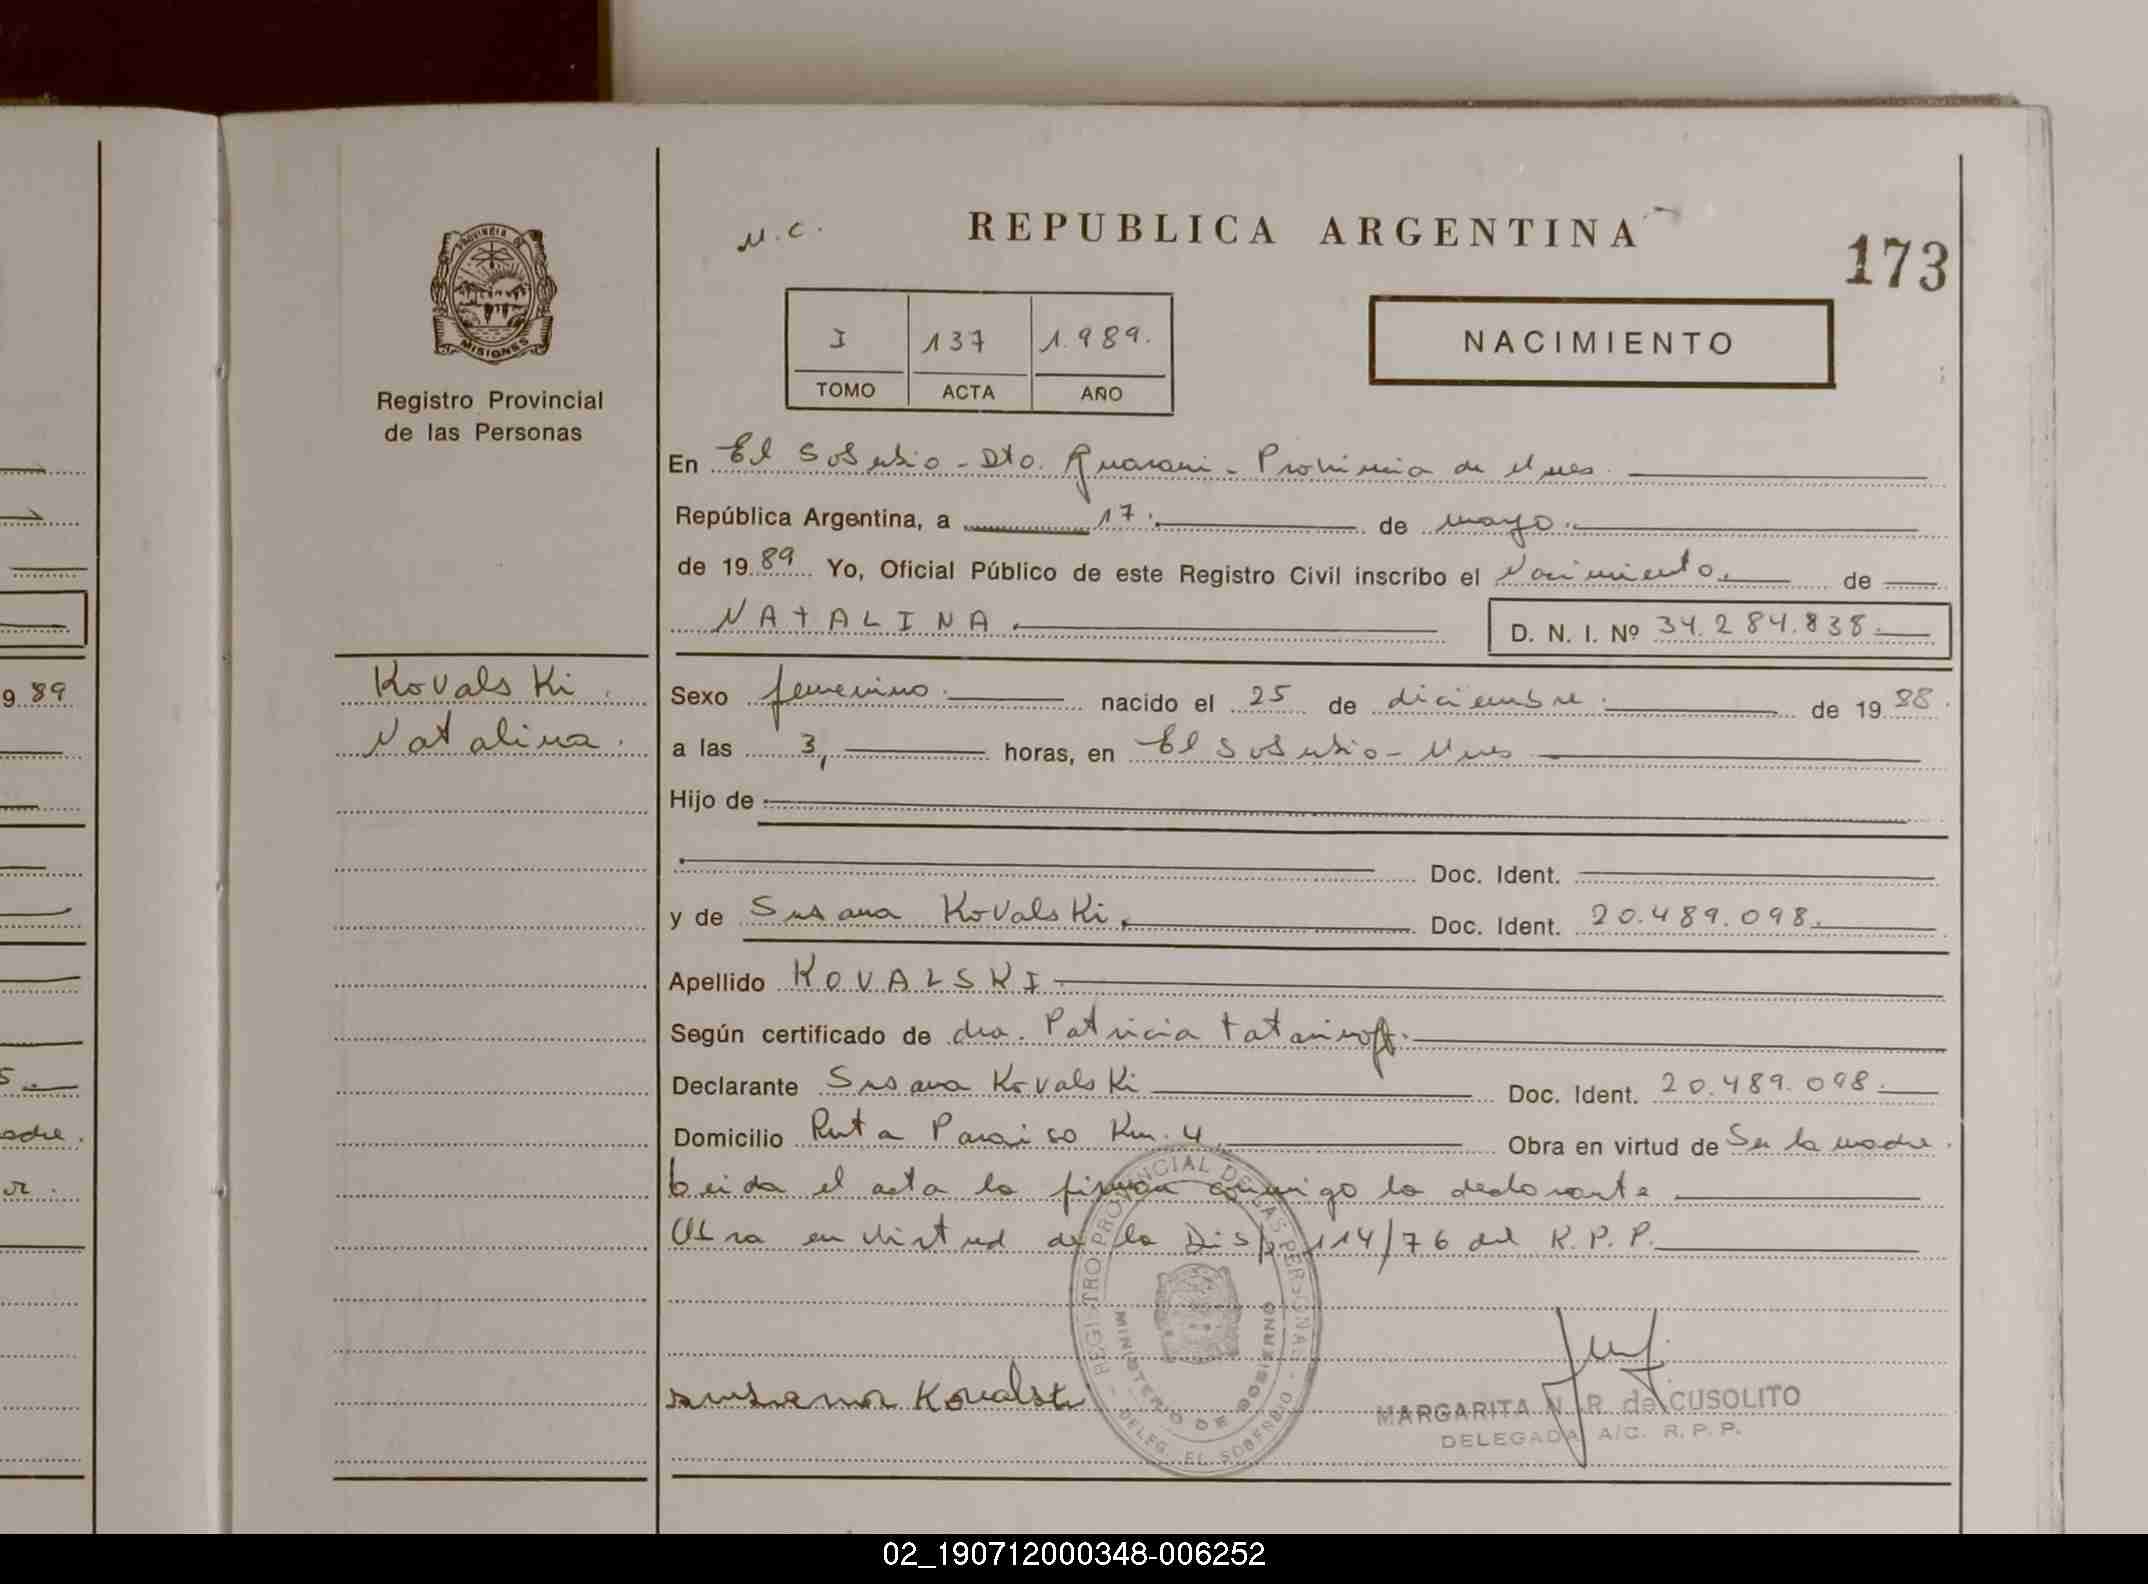 PROVINCIA DE
MISIONES
Registro Provincial
de las Personas
M.C.
REPUBLICA ARGENTINA
173
I 137 1.989.
TOMO ACTA AÑO
NACIMIENTO
En El Soberbio - Dto. Guarani - Provincia de Mnes.
República Argentina, a 17. de mayo.
de 1989 Yo, Oficial Público de este Registro Civil inscribo el Nacimiento. de
NATALINA.
D. N. I. Nº 34.284.838.
Kovalski.
Natalina.
Sexo femenino. nacido el 25 de diciembre. de 1988.
a las 3, horas, en El Soberbio - Mnes
Hijo de
Doc. Ident.
y de Susana Kovalski. Doc. Ident. 20.489.098.
Apellido KOVALSKI
Según certificado de dra. Patricia Tatarinoff.
Declarante Susana Kovalski Doc. Ident. 20.489.098.
Domicilio Ruta Paraiso Km. 4. Obra en virtud de Ser la madre.
Leida el acta la firma conmigo la declarante
Obra en virtud de la Disp. 114/76 del R.P.P.
REGISTRO PROVINCIAL DE LAS PERSONAS
MINISTERIO DE GOBIERNO
DELEG. EL SOBERBIO
susana Kovalski
MARGARITA N. R. de CUSOLITO
DELEGADA A/C. R. P. P.
9 89
adre.
02_190712000348-006252